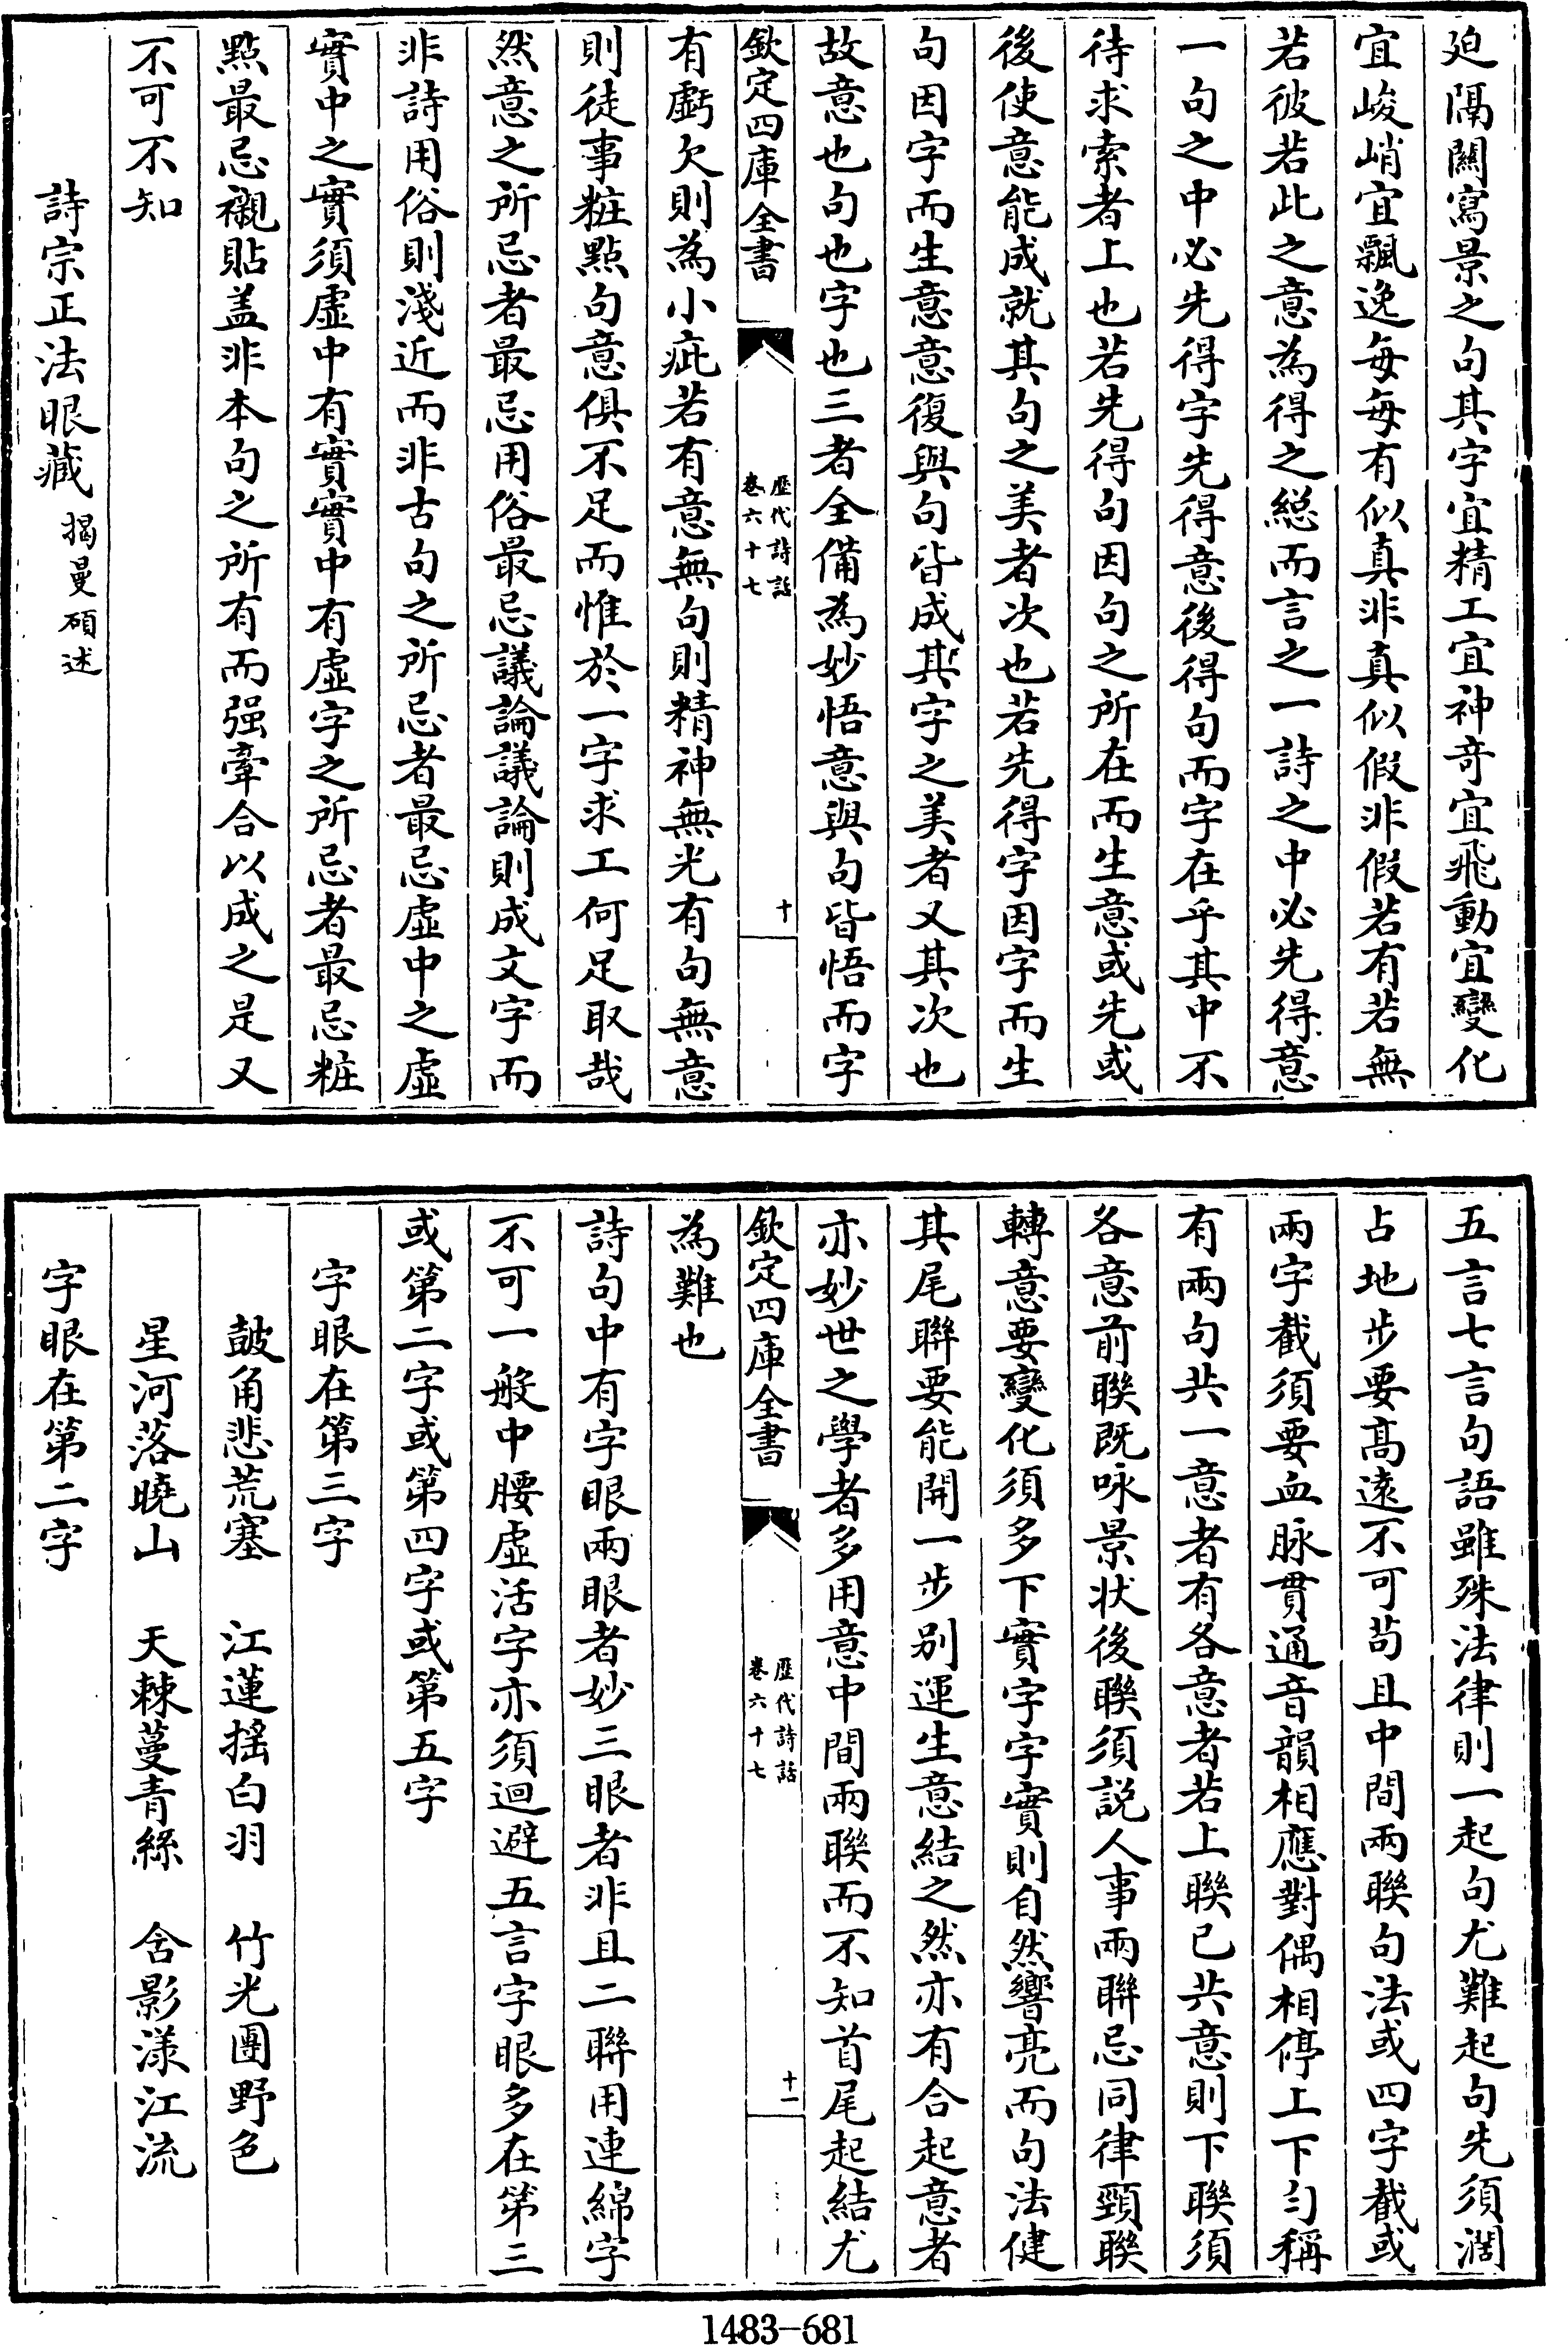 廹隔闗寫景之句其字宜精工宜神奇宜飛動宜變化
宜峻峭宜飄逸每每有似真非真似假非假若有若無
若彼若此之意為得之總而言之一詩之中必先得意
一句之中必先得字先得意後得句而字在乎其中不
待求索者上也若先得句因句之所在而生意或先或
後使意能成就其句之美者次也若先得字因字而生
句因字而生意意復與句皆成其字之美者又其次也
故意也句也字也三者全備為妙悟意與句皆悟而字
欽定四庫全書
歴代詩話
卷六十七
十
有虧欠則為小疵若有意無句則精神無光有句無意
則徒事粧點句意俱不足而惟於一字求工何足取哉
然意之所忌者最忌用俗最忌議論議論則成文字而
非詩用俗則淺近而非古句之所忌者最忌虛中之虛
實中之實須虛中有實實中有虛字之所忌者最忌粧
點最忌襯貼盖非本句之所有而强牽合以成之是又
不可不知
詩宗正法眼藏 揭曼碩述
五言七言句語雖殊法律則一起句尤難起句先須濶
占地步要髙逺不可苟且中間兩聯句法或四字截或
兩字截須要血脉貫通音韻相應對偶相停上下匀稱
有兩句共一意者有各意者若上聯已共意則下聯須
各意前聯既咏景状後聯須説人事兩聨忌同律頸聯
轉意要變化須多下實字字實則自然響亮而句法健
其尾聨要能開一步别運生意結之然亦有合起意者
亦妙世之學者多用意中間兩聯而不知首尾起結尤
欽定四庫全書
歴代詩話
卷六十七
十一
為難也
詩句中有字眼兩眼者妙三眼者非且二聨用連綿字
不可一般中腰虛活字亦須迴避五言字眼多在第三
或第二字或第四字或第五字
字眼在第三字
鼓角悲荒塞 江蓮揺白羽 竹光團野色
星河落曉山 天棘蔓青絲 含影漾江流
字眼在第二字
1483-681